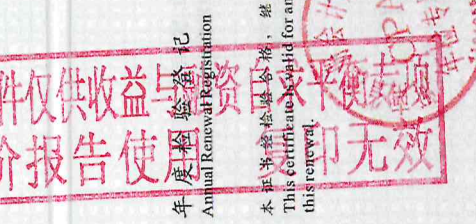 件仅供收益与融资自求平衡专项
价报告使用 复印无效
年度检验登记
Annual Renewal Registration
本证书经检验合格，继
This certificate is valid for an
this renewal.